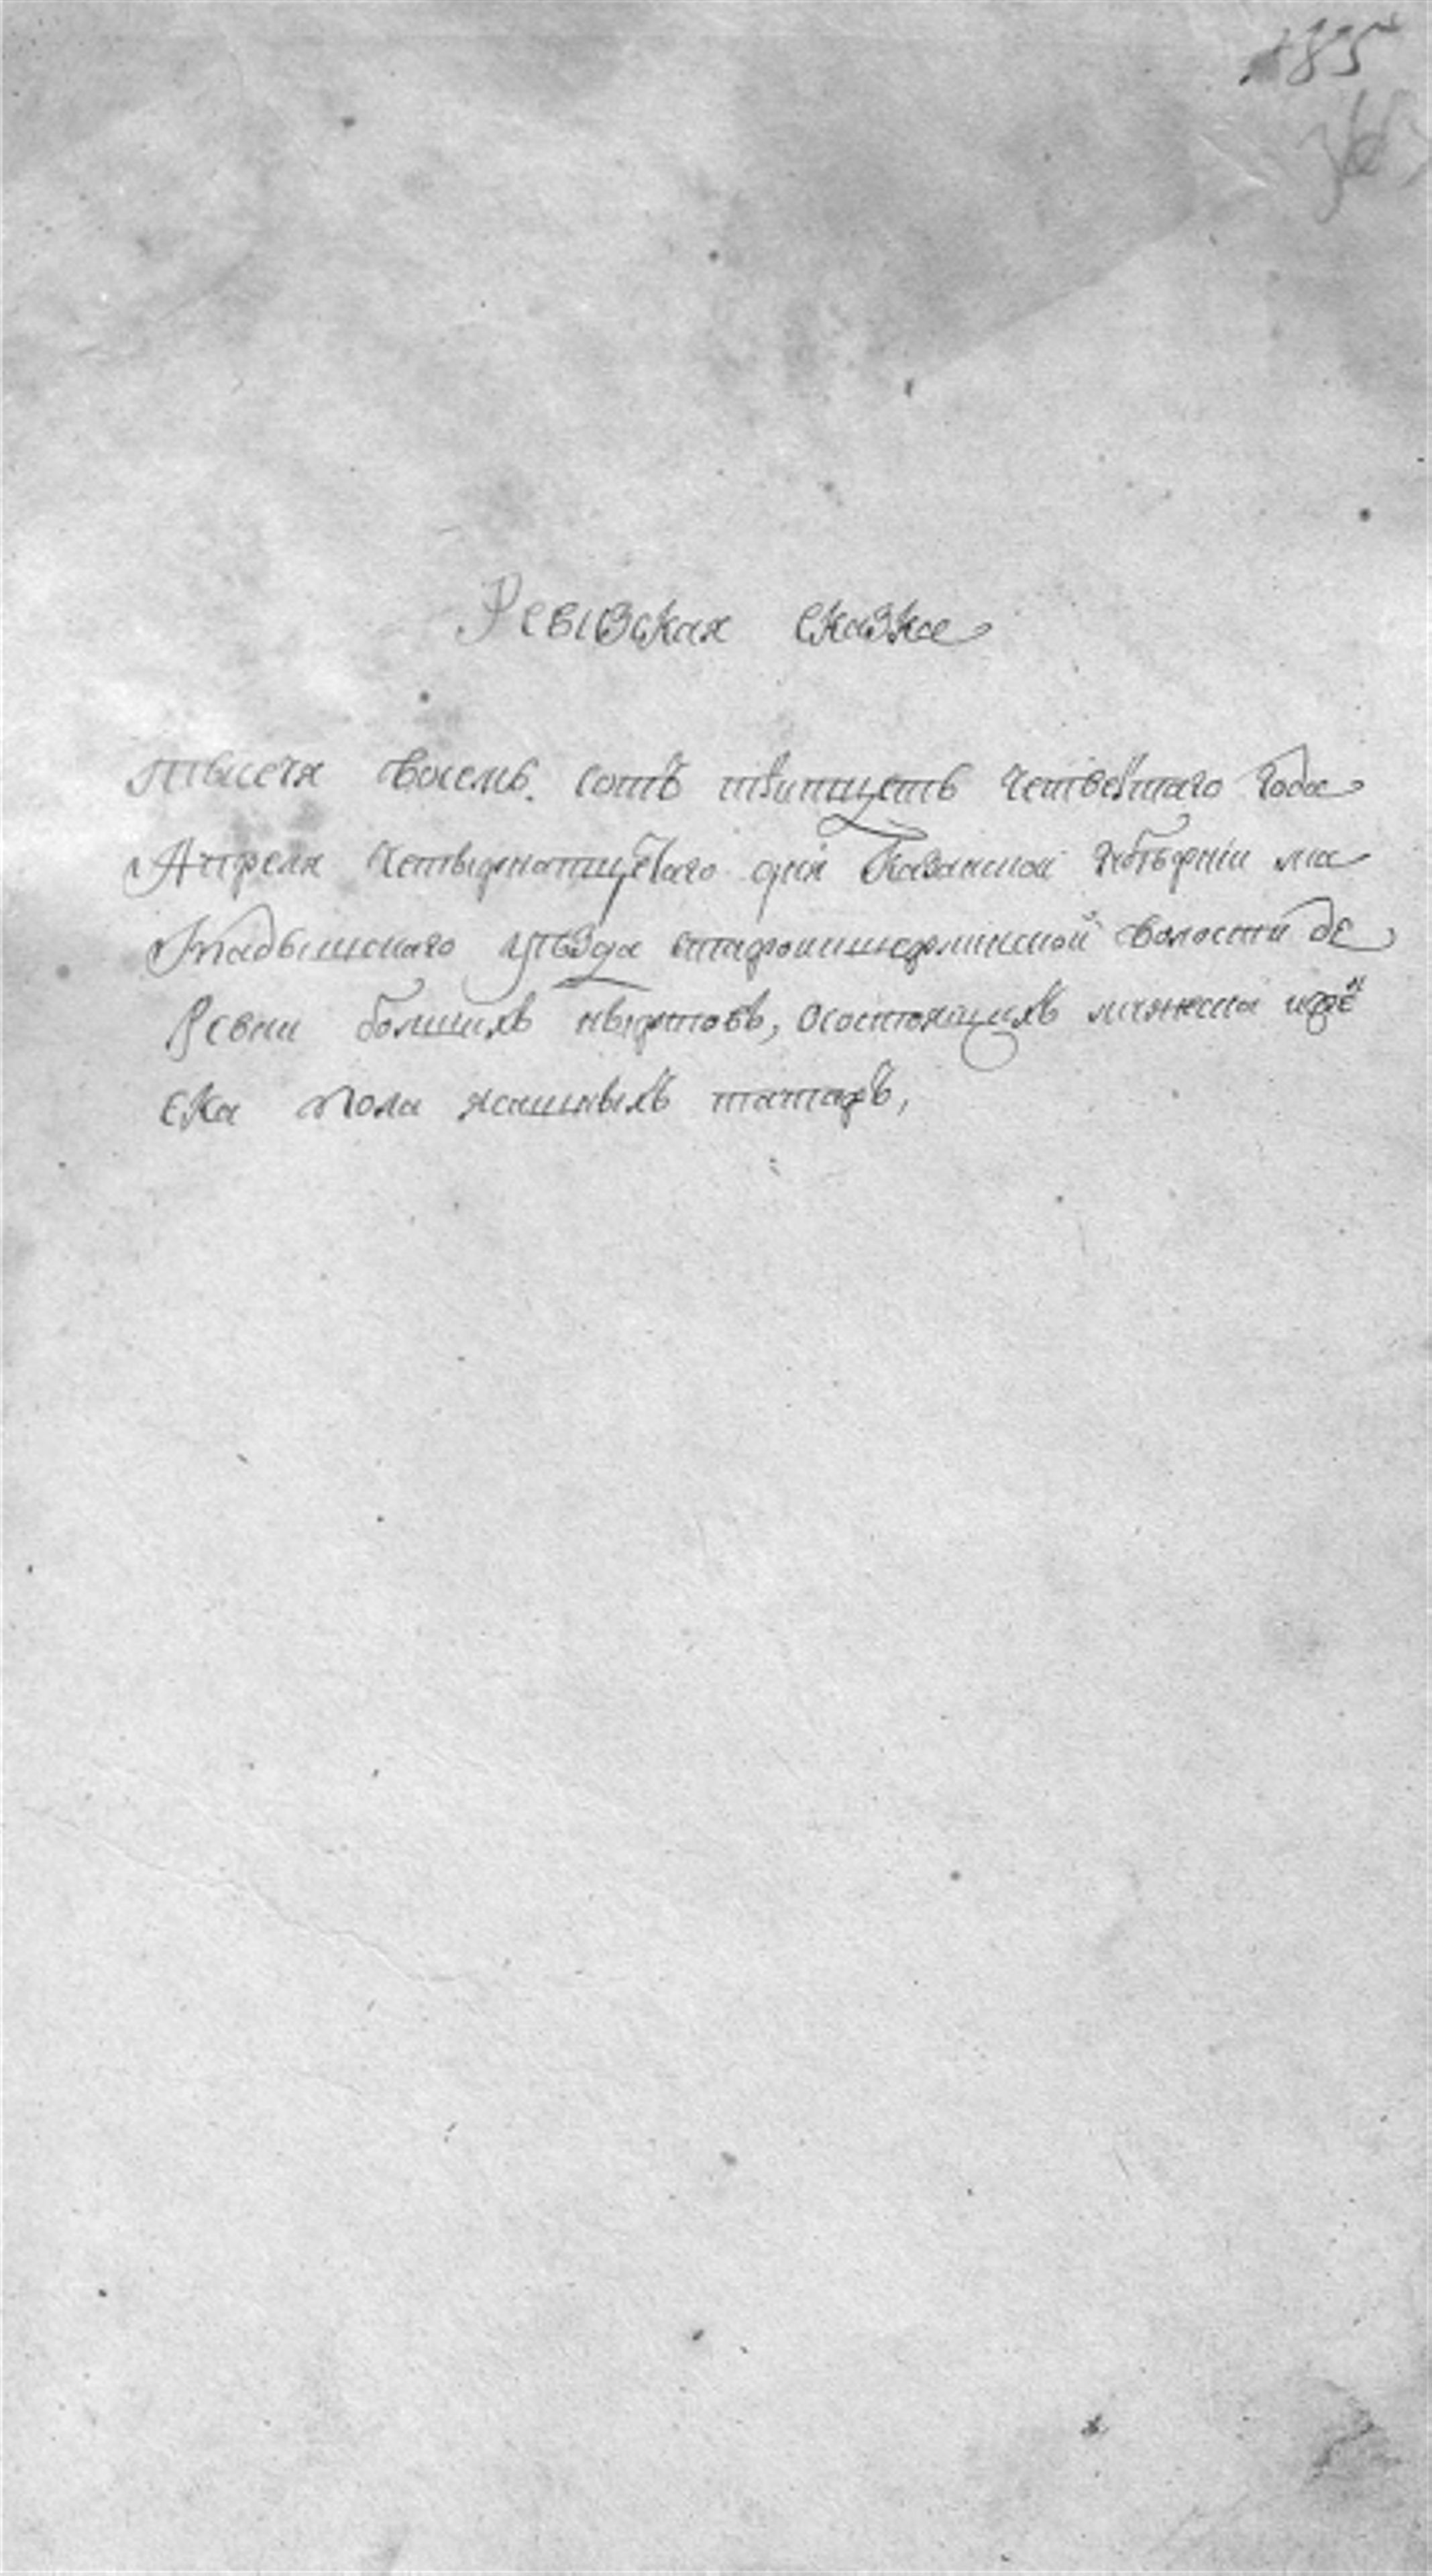 185
Ревизская сказка
тысеча восемь сотъ тритцеть четвертаго года
Апреля четвырнатцетаго дня Казанской губѣрніи ма
мадышскаго уѣзда старопишерминской волости де
ревни болшихъ нвыртовъ, осостоящихъ мужеска иже
ска пола ясашныхъ татаръ,